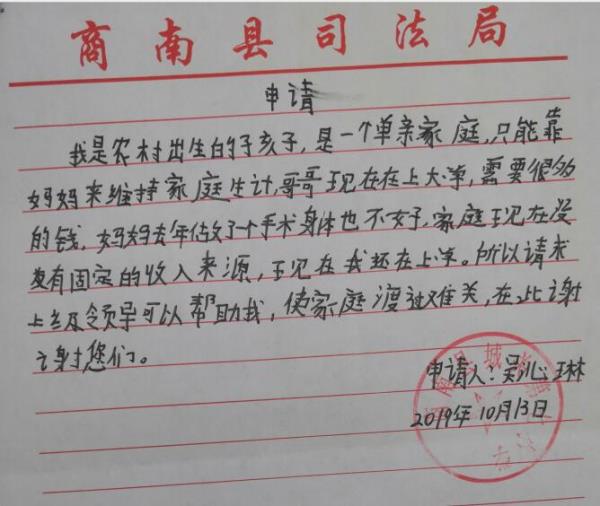 商南县司法局
申请
我是农村出生的孩子,是一个单亲家庭,只能靠
妈妈来维持家庭生计,哥哥现在在上大学,需要很多
的钱,妈妈去年做了一个手术身体也不好,家庭现在没
有固定的收入来源,现在我还在上学。所以请求
上级领导可以帮助我,使家庭渡过难关,在此谢
谢您们。
申请人:吴心琳
2019年10月13日